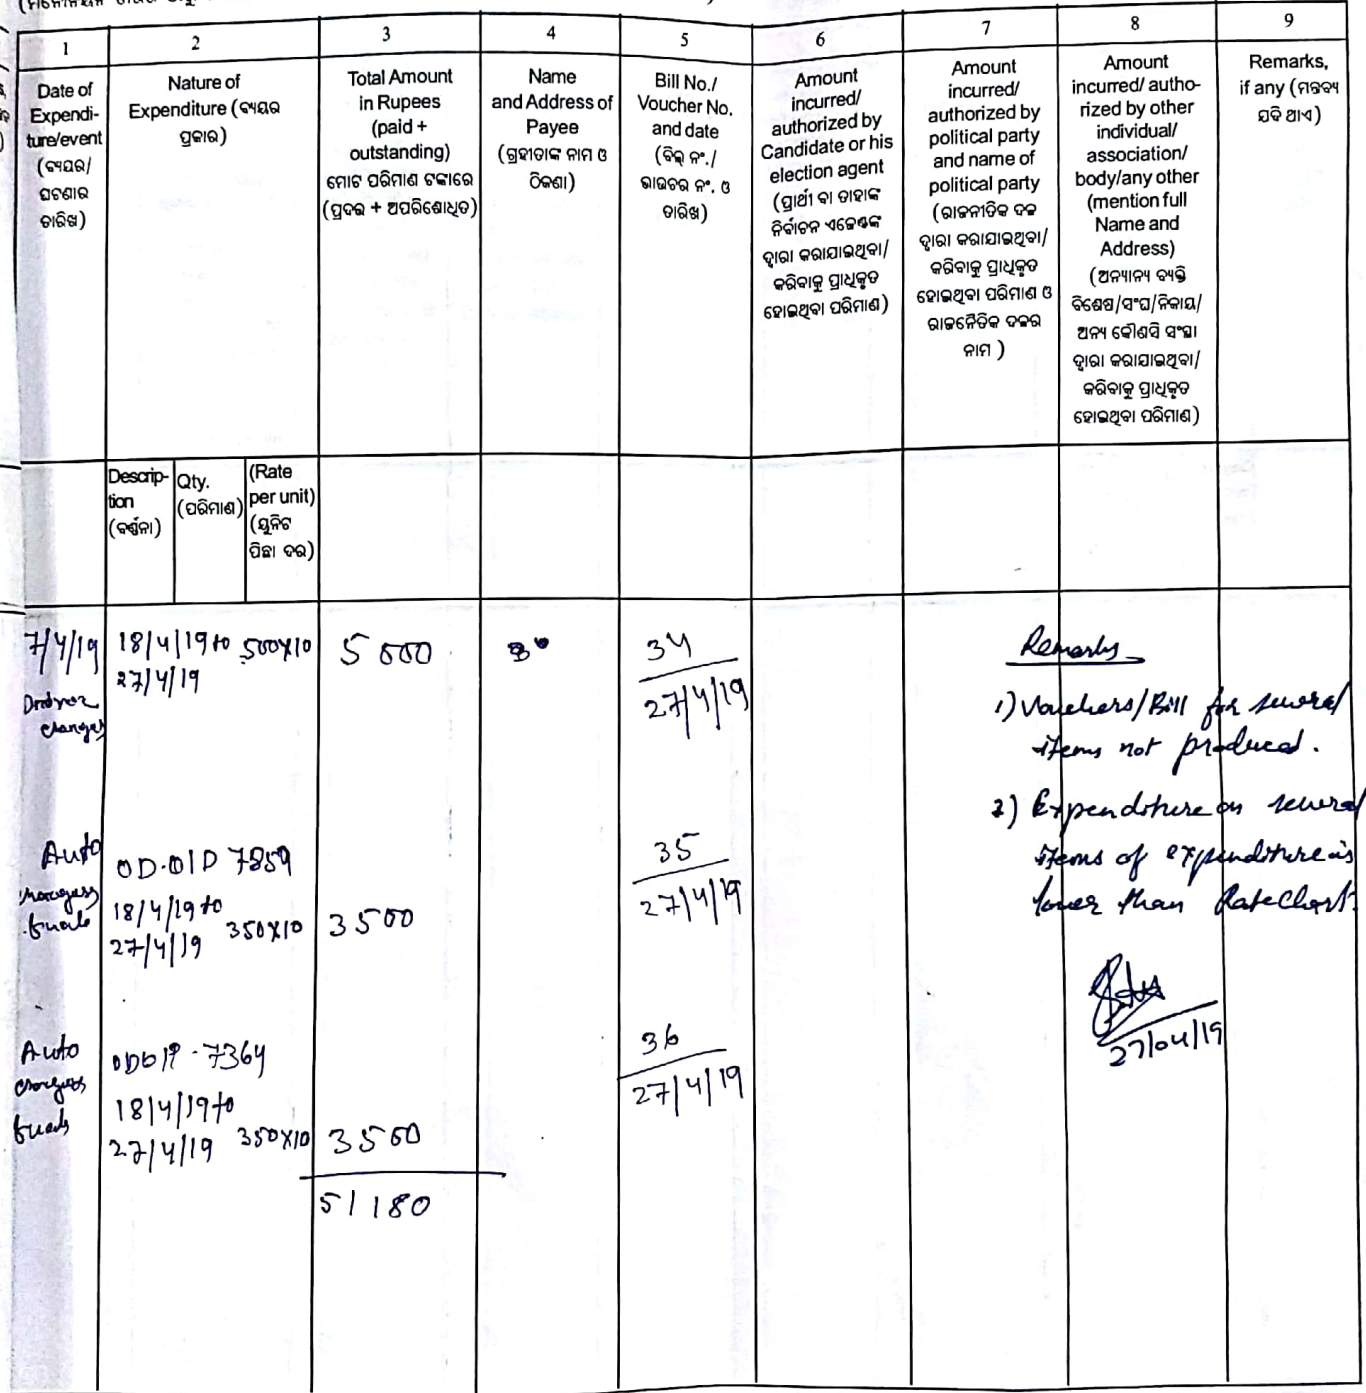 1 2 3 4 5 6 7 8 9
Date of
Expendi-
ture/event
(ବ୍ୟୟର/
ଘଟଣାର
ତାରିଖ)
Nature of
Expenditure (ବ୍ୟୟର
ପ୍ରକାର)
Total Amount
in Rupees
(paid +
outstanding)
ମୋଟ ପରିମାଣ ଟଙ୍କାରେ
(ପ୍ରଦତ୍ତ + ଅପରିଶୋଧିତ)
Name
and Address of
Payee
(ଗ୍ରହୀତାଙ୍କ ନାମ ଓ
ଠିକଣା)
Bill No./
Voucher No.
and date
(ବିଲ୍ ନଂ./
ଭାଉଚର ନଂ. ଓ
ତାରିଖ)
Amount
incurred/
authorized by
Candidate or his
election agent
(ପ୍ରାର୍ଥୀ ବା ତାହାଙ୍କ
ନିର୍ବାଚନ ଏଜେଣ୍ଟଙ୍କ
ଦ୍ୱାରା କରାଯାଇଥିବା/
କରିବାକୁ ପ୍ରାଧିକୃତ
ହୋଇଥିବା ପରିମାଣ)
Amount
incurred/
authorized by
political party
and name of
political party
(ରାଜନୀତିକ ଦଳ
ଦ୍ୱାରା କରାଯାଇଥିବା/
କରିବାକୁ ପ୍ରାଧିକୃତ
ହୋଇଥିବା ପରିମାଣ ଓ
ରାଜନୈତିକ ଦଳର
ନାମ )
Amount
incurred/ autho-
rized by other
individual/
association/
body/any other
(mention full
Name and
Address)
(ଅନ୍ୟାନ୍ୟ ବ୍ୟକ୍ତି
ବିଶେଷ/ସଂଘ/ନିକାୟ/
ଅନ୍ୟ କୌଣସି ସଂସ୍ଥା
ଦ୍ୱାରା କରାଯାଇଥିବା/
କରିବାକୁ ପ୍ରାଧିକୃତ
ହୋଇଥିବା ପରିମାଣ)
Remarks,
if any (ମନ୍ତବ୍ୟ
ଯଦି ଥାଏ)
Descrip-
tion
(ବର୍ଣ୍ଣନା)
Qty.
(ପରିମାଣ)
(Rate
per unit)
(ୟୁନିଟ
ପିଛା ଦର)
7/4/19 18/4/19 to 500x10 5000 34
27/4/19 27/4/19
Auto OD.01D 7859 35
18/4/19 to 27/4/19
27/4/19 350x10 3500
Auto 7364 36
18/4/19 to 27/4/19
27/4/19 350x10 3500
51180
Remarks
1) Vouchers/Bill for several
items not produced.
2) Expenditure on several
items of expenditure is
lower than RateChart.
27/04/19